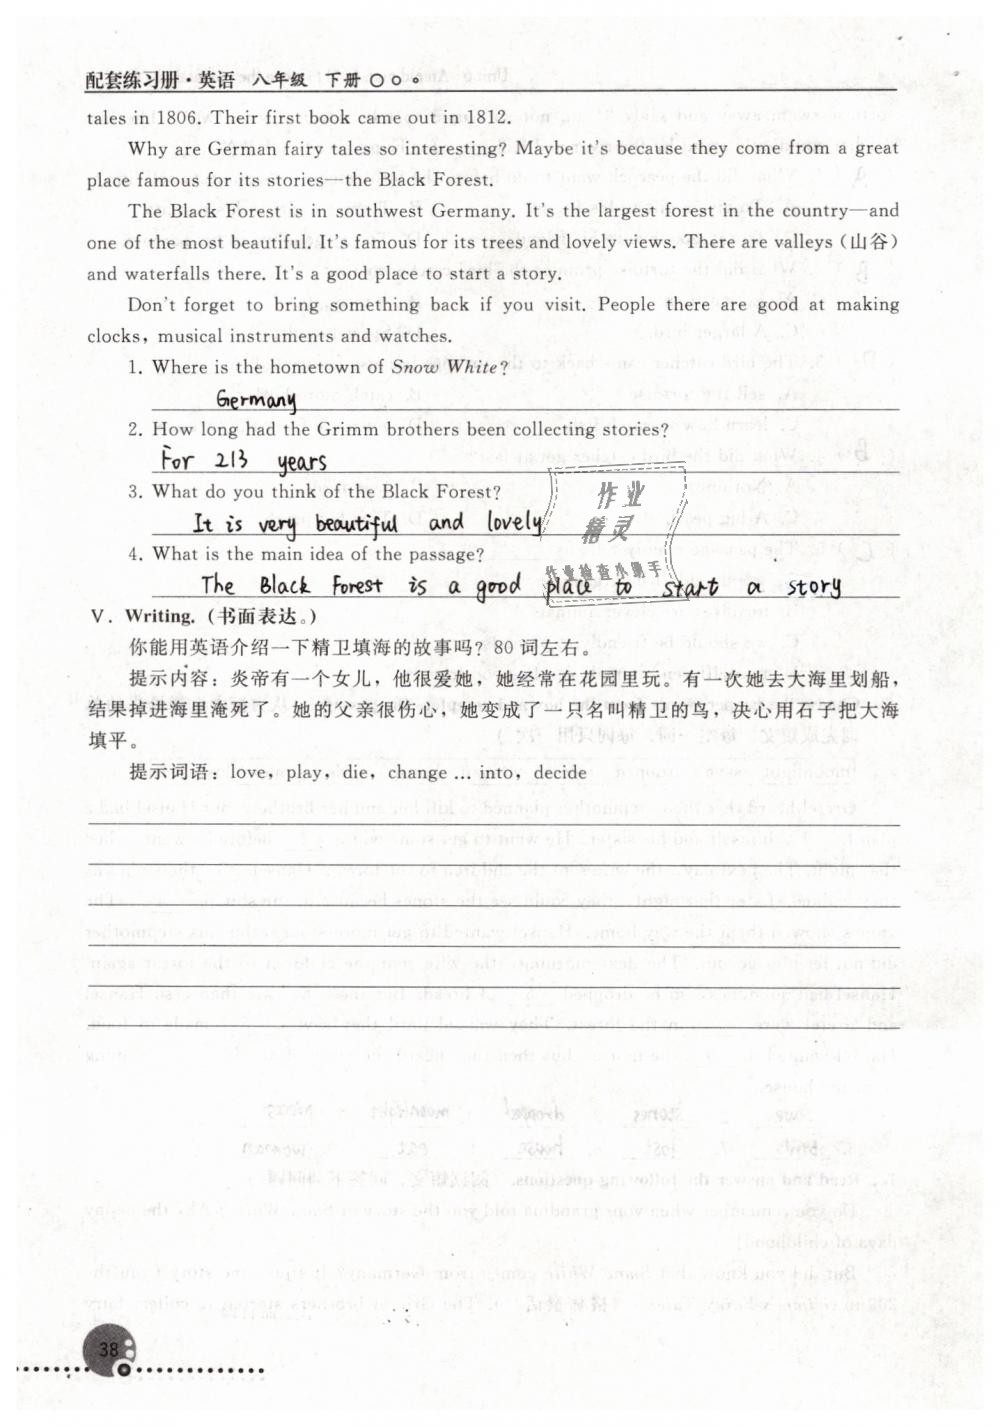 配套练习册·英语 八年级 下册
tales in 1806. Their first book came out in 1812.
Why are German fairy tales so interesting? Maybe it's because they come from a great
place famous for its stories—the Black Forest.
The Black Forest is in southwest Germany. It's the largest forest in the country—and
one of the most beautiful. It's famous for its trees and lovely views. There are valleys (山谷)
and waterfalls there. It's a good place to start a story.
Don't forget to bring something back if you visit. People there are good at making
clocks, musical instruments and watches.
1. Where is the hometown of Snow White?
Germany
2. How long had the Grimm brothers been collecting stories?
For 213 years
3. What do you think of the Black Forest?
It is very beautiful and lovely
4. What is the main idea of the passage?
The Black Forest is a good place to start a story
作业
精灵
作业检查小助手
Ⅴ. Writing. (书面表达。)
你能用英语介绍一下精卫填海的故事吗? 80 词左右。
提示内容: 炎帝有一个女儿, 他很爱她, 她经常在花园里玩。有一次她去大海里划船,
结果掉进海里淹死了。她的父亲很伤心, 她变成了一只名叫精卫的鸟, 决心用石子把大海
填平。
提示词语: love, play, die, change ... into, decide
38